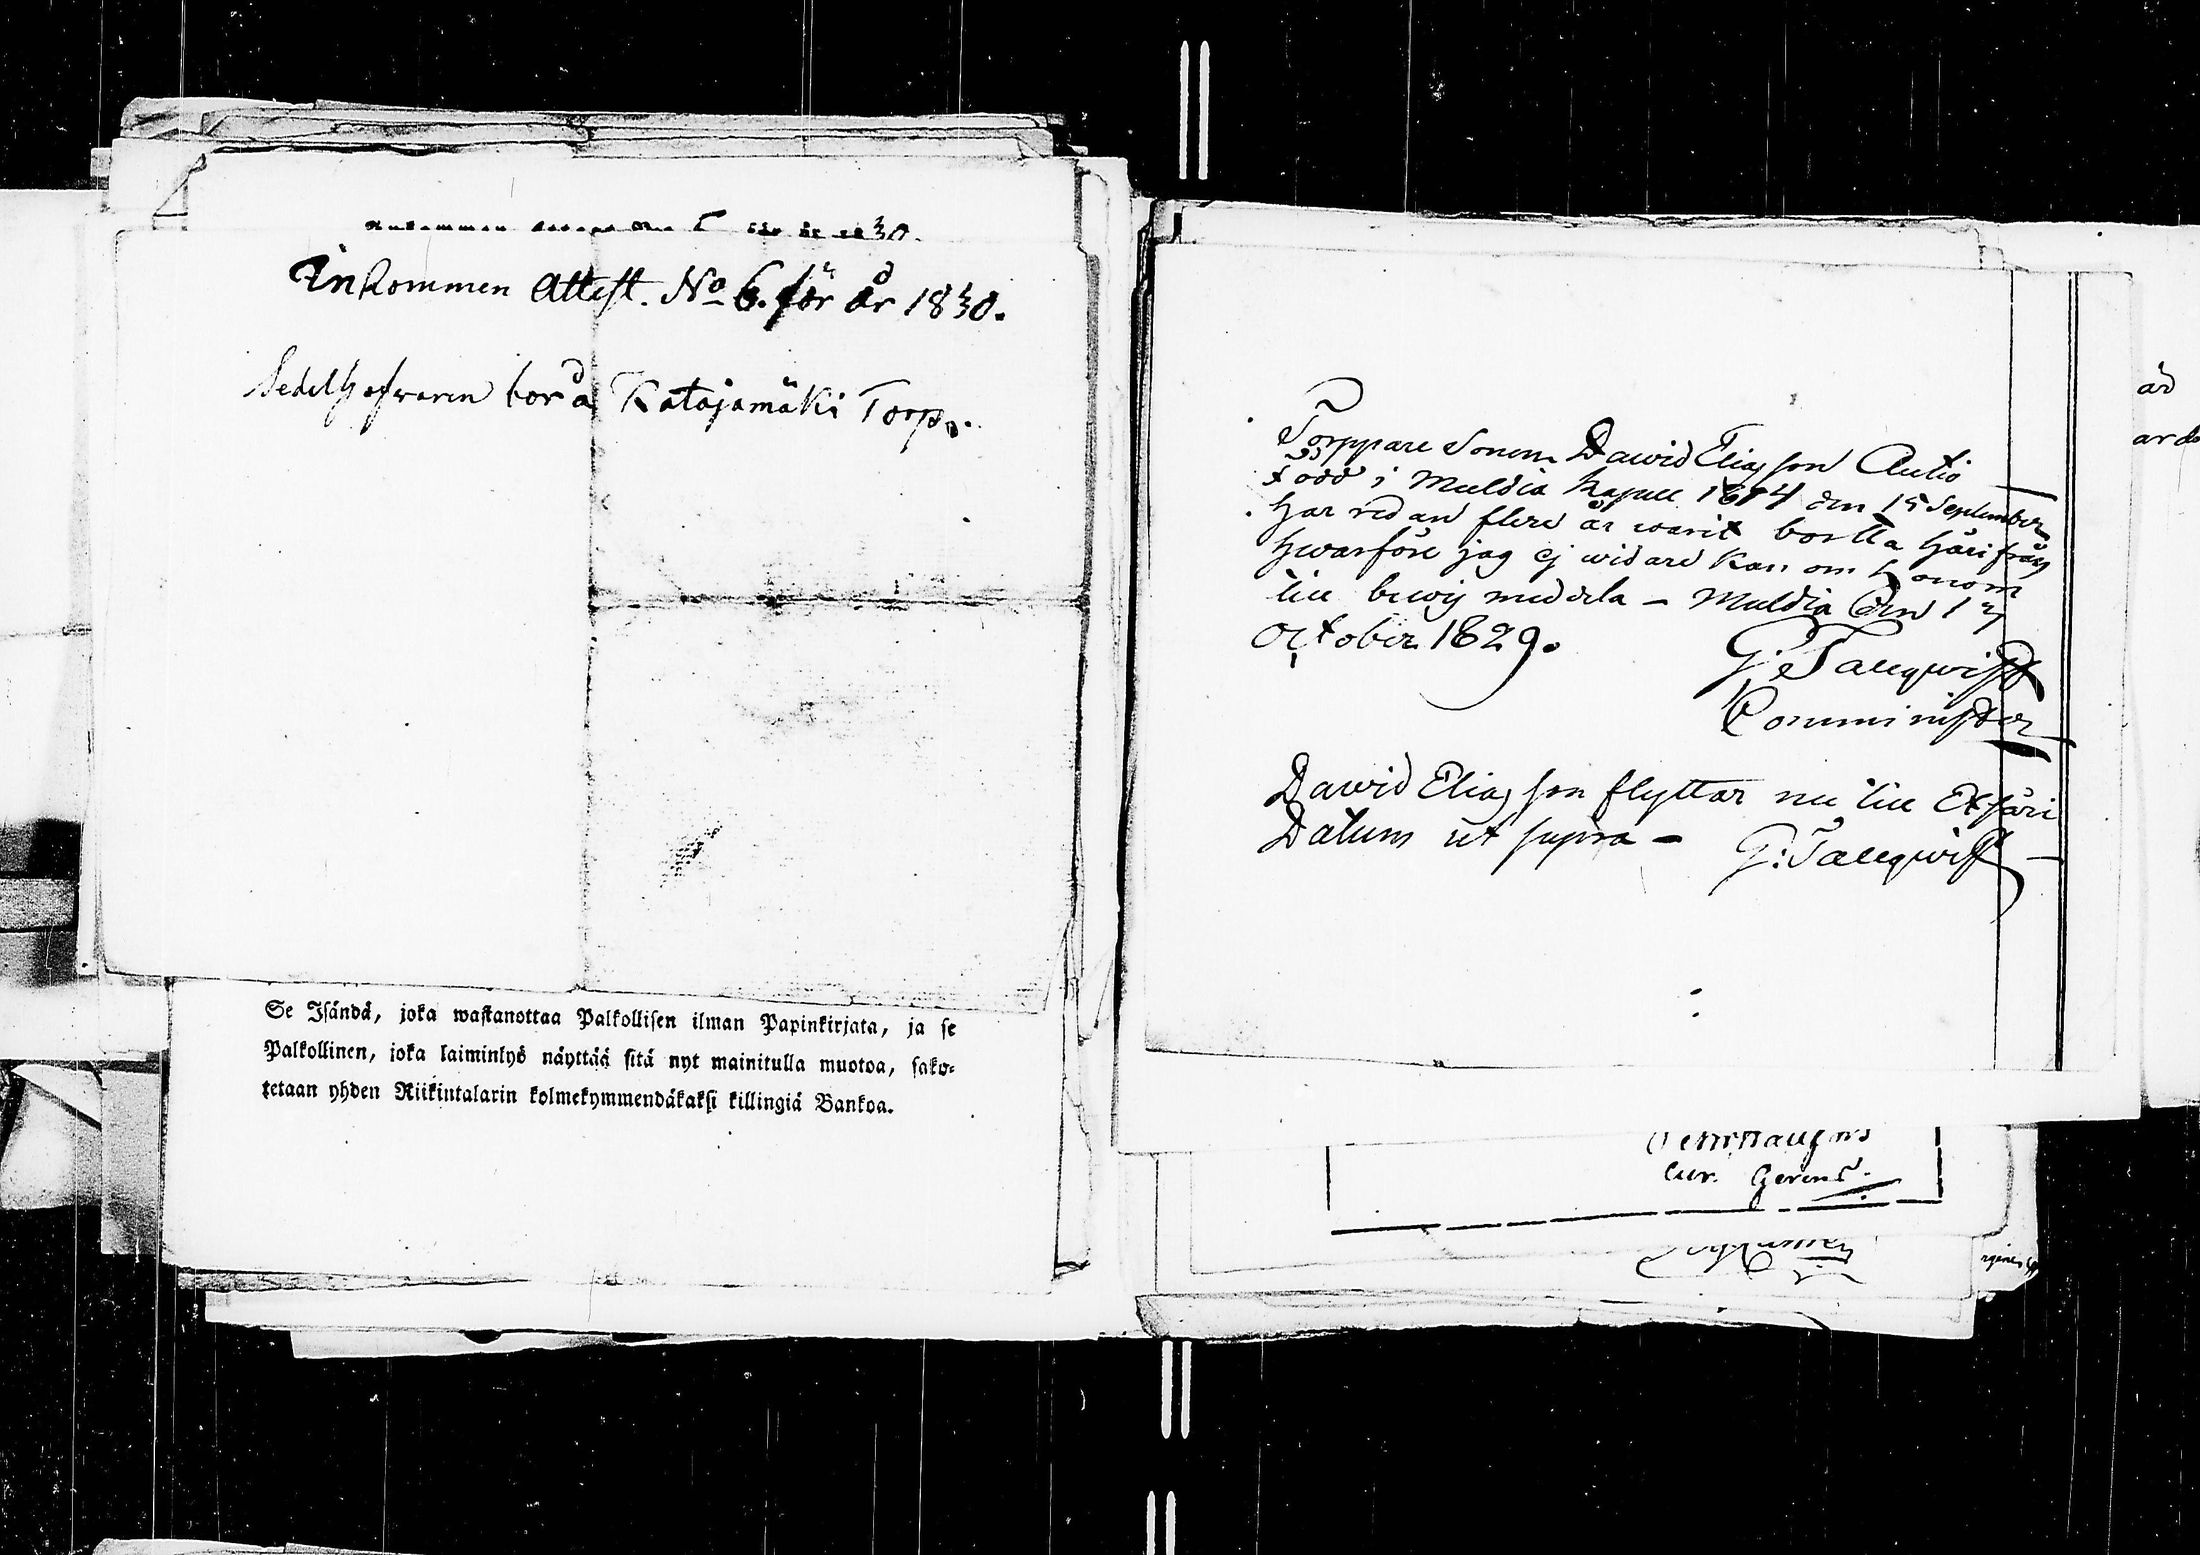 Inkommen Attest. No 6. för år 1830.
Sedelhafwaren bor å Katajamäki Torp.
Se Isändä, joka wastanottaa Palkollisen ilman Papinkirjata, ja se
Palkollinen, joka laiminlyö näyttää sitä nyt mainitulla muotoa, sako-
tetaan yhden Riikintalarin kolmekymmendäkaksi killingiä Bankoa.
Torppare Sonen Dawid Eliasson Autio
född i Muldia Kapell 1814 den 15 September
har redan flere år warit borrta härifrån
hwarföre jag ej widare kan om honom
till bewis meddela - Muldia den 17
October 1829.
G: Tallqwist
Comminister
Dawid Eliasson flyttar nu till Etseri
Datum ut supra - G: Tallqwist
Cur. Gerens.